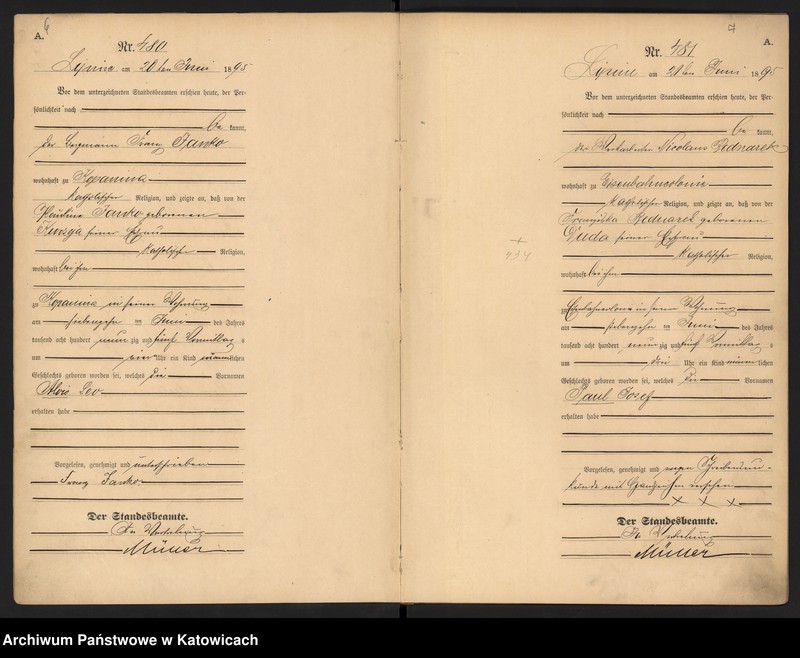 6
A.
Nr. 480
Lipine am 20ten Juni 1895
Vor dem unterzeichneten Standesbeamten erschien heute, der Per-
sönlichkeit nach
be kannt,
der Bergmann Franz Janko
wohnhaft zu Kopanina
katholischer Religion, und zeigte an, daß von der
Pauline Janko geborenen
seiner Ehefrau
katholischer Religion,
wohnhaft bei ihm
zu Kopanina in seiner Wohnung
am siebenzehn ten Juni des Jahres
tausend acht hundert neun zig und fünf Vormittag s
um vier Uhr ein Kind männlichen
Geschlechts geboren worden sei, welches die Vornamen
Alois Leo
erhalten habe
Vorgelesen, genehmigt und unterschrieben
Franz Janko
Der Standesbeamte.
In Vertretung
Müller
7
A.
Nr. 481
Lipine am 21ten Juni 1895
Vor dem unterzeichneten Standesbeamten erschien heute, der Per-
sönlichkeit nach
be kannt,
der Nicolaus Bednarek
wohnhaft zu Eisenbahncolonie
katholischer Religion, und zeigte an, daß von der
Franziska Bednarek geborenen
Duda seiner Ehefrau
katholischer Religion,
wohnhaft bei ihm
zu Eisenbahncolonie in seiner Wohnung
am siebenzehn ten Juni des Jahres
tausend acht hundert neun zig und fünf Vormittag s
um drei Uhr ein Kind männlichen
Geschlechts geboren worden sei, welches die Vornamen
Paul Josef
erhalten habe
Vorgelesen, genehmigt und wegen Schreibenun-
kunde mit Handzeichen versehen
x x x
Der Standesbeamte.
In Vertretung
Müller
Archiwum Państwowe w Katowicach